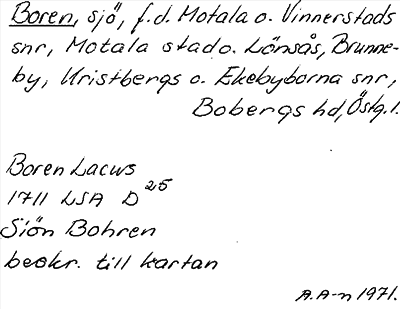 Boren, sjö, f.d. Motala o. Vinnerstads
snr, Motala stad o. Lönsås, Brunne-
by, Kristbergs o. Ekebyborna snr,
Bobergs hd, Östg.l.
Boren Lacus
1711 LSA D 25
Siön Bohren
beskr. till kartan
A.A-n 1971.